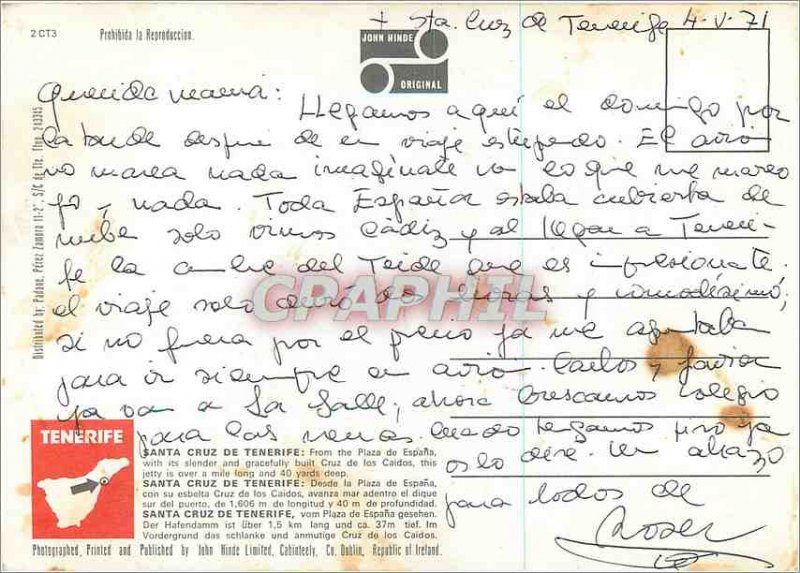 2 CT3
Prohibida la Reproduccion.
JOHN HINDE
ORIGINAL
+ Sta. Cruz de Tenerife 4-V-71
Distributed by: Padano, Pérez Zamora 11-2°. S/C de Tfe. Tfno. 243345
Querida mamá:
Llegamos aquí el domingo por
la tarde despué de un viaje estupendo. El avión
no marea nada imagínate con lo que me mareo
yo y nada. Toda España estaba cubierta de
nube solo vimos Cádiz y al llegar a Teneri-
fe la cumbre del Teide que es impresionante.
el viaje solo duró dos horas y comodísimo,
si no fuera por el precio ya me apuntaba
para ir siempre en avión. Carlos y Javier
ya van a La Salle, ahora buscamos colegio
para las nenas. Cuando tengamos piso ya
os lo diré. Un abrazo
para todos de
Roser
CPAPHIL
TENERIFE
SANTA CRUZ DE TENERIFE: From the Plaza de España,
with its slender and gracefully built Cruz de los Caidos, this
jetty is over a mile long and 40 yards deep.
SANTA CRUZ DE TENERIFE: Desde la Plaza de España,
con su esbelta Cruz de los Caidos, avanza mar adentro el dique
sur del puerto, de 1,606 m de longitud y 40 m de profundidad.
SANTA CRUZ DE TENERIFE, vom Plaza de España gesehen.
Der Hafendamm ist über 1,5 km lang und ca. 37m tief. Im
Vordergrund das schlanke und anmutige Cruz de los Caidos.
Photographed, Printed and Published by John Hinde Limited, Cabinteely, Co. Dublin, Republic of Ireland.